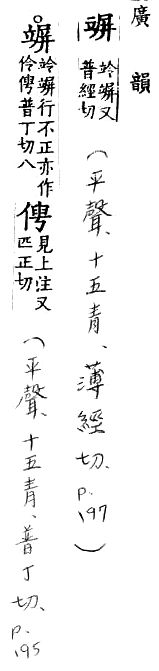 廣韻
竮竛竮又普經切(平聲、十五青、薄經切、p.197)
竮竛竮行不正亦作伶俜普丁切八 俜見上注又匹正切(平聲、十五青、普丁切、p.195